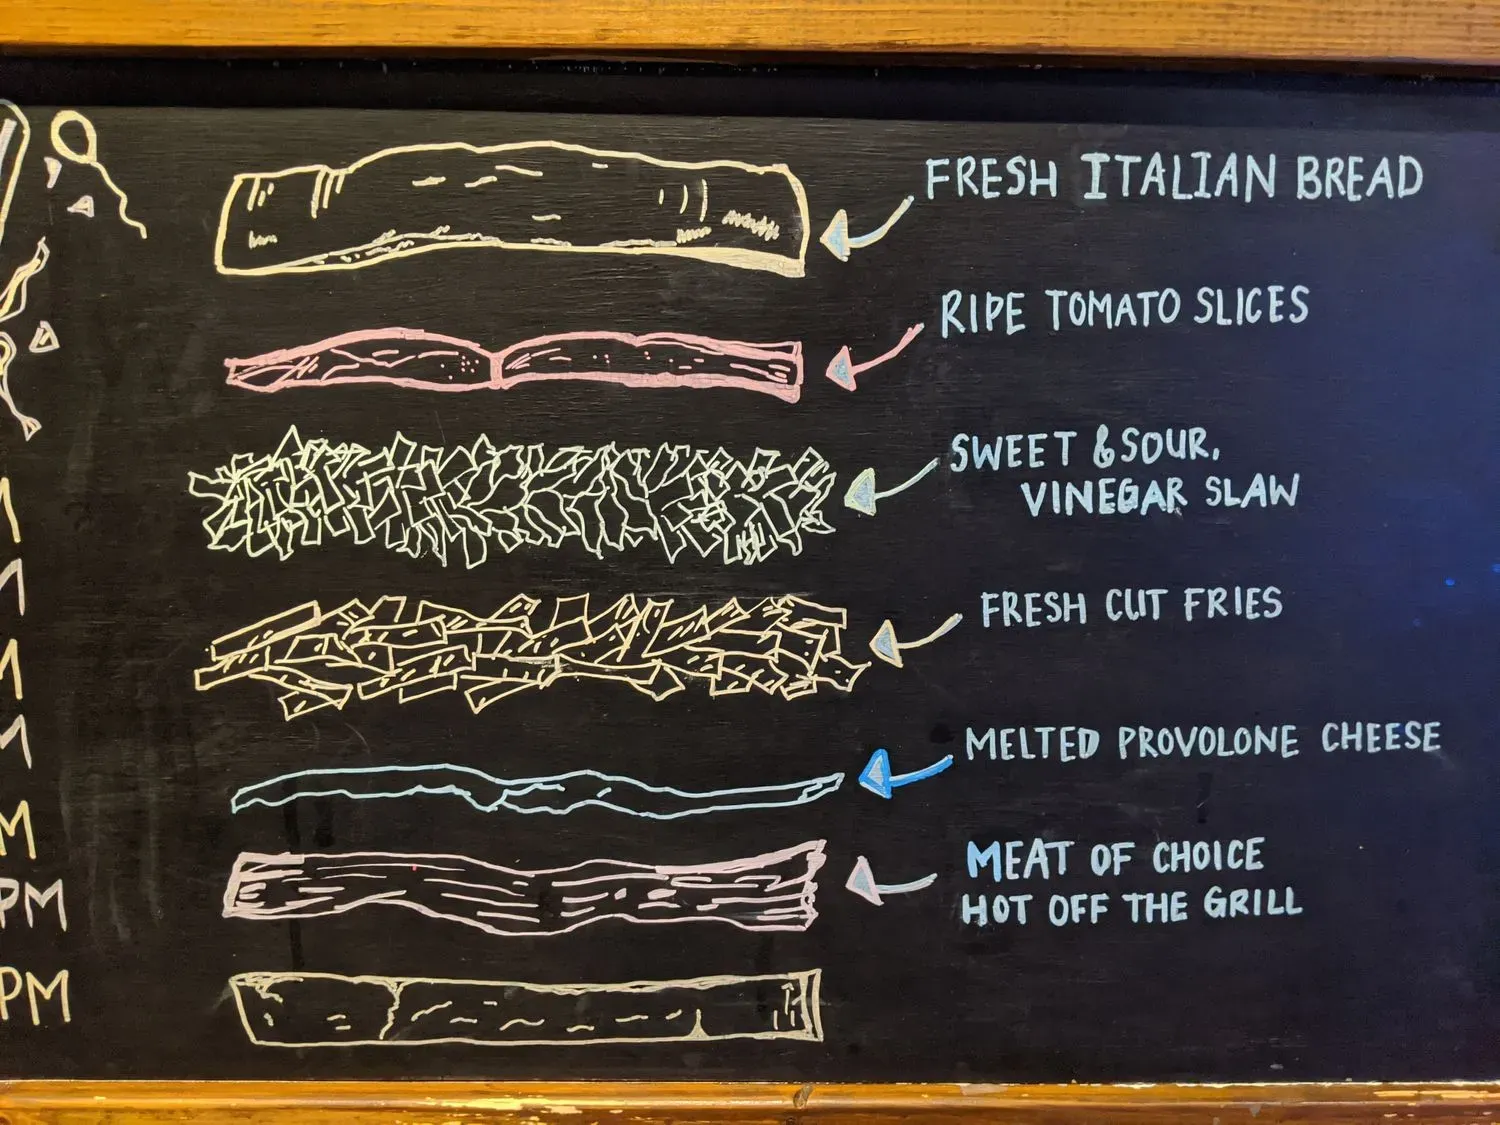 FRESH ITALIAN BREAD
RIPE TOMATO SLICES
SWEET & SOUR,
VINEGAR SLAW
FRESH CUT FRIES
MELTED PROVOLONE CHEESE
MEAT OF CHOICE
HOT OFF THE GRILL
M
M
M
M
M
PM
PM